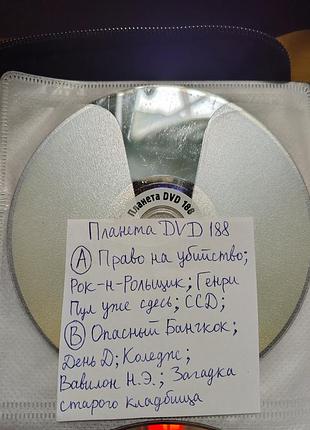 Планета DVD 188
Планета DVD 188
(А) Право на убийство;
Рок-н-Рольщик; Генри
Пул уже сдесь; ССD;
(В) Опасный Бангкок;
День Д; Коледж;
Вавилон Н.Э.; Загадка
старого кладбища